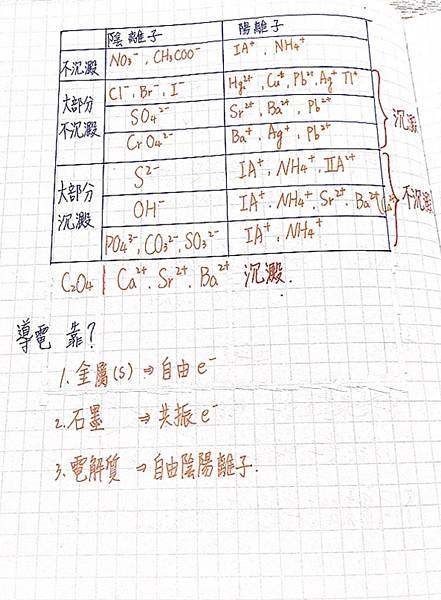 陰離子 陽離子
不沉澱 NO₃⁻, CH₃COO⁻ IA⁺, NH₄⁺
大部分不沉澱 Cl⁻, Br⁻, I⁻ Hg₂²⁺, Cu⁺, Pb²⁺, Ag⁺ Tl⁺ 沉澱
SO₄²⁻ Sr²⁺, Ba²⁺, Pb²⁺
CrO₄²⁻ Ba²⁺, Ag⁺, Pb²⁺
大部分沉澱 S²⁻ IA⁺, NH₄⁺, IIA²⁺ 不沉澱
OH⁻ IA⁺, NH₄⁺, Sr²⁺, Ba²⁺
PO₄³⁻, CO₃²⁻, SO₃²⁻ IA⁺, NH₄⁺
C₂O₄ | Ca²⁺. Sr²⁺. Ba²⁺ 沉澱.
導電 靠?
1. 金屬(s) ⇒ 自由 e⁻
2. 石墨 ⇒ 共振 e⁻
3. 電解質 ⇒ 自由陰陽離子.